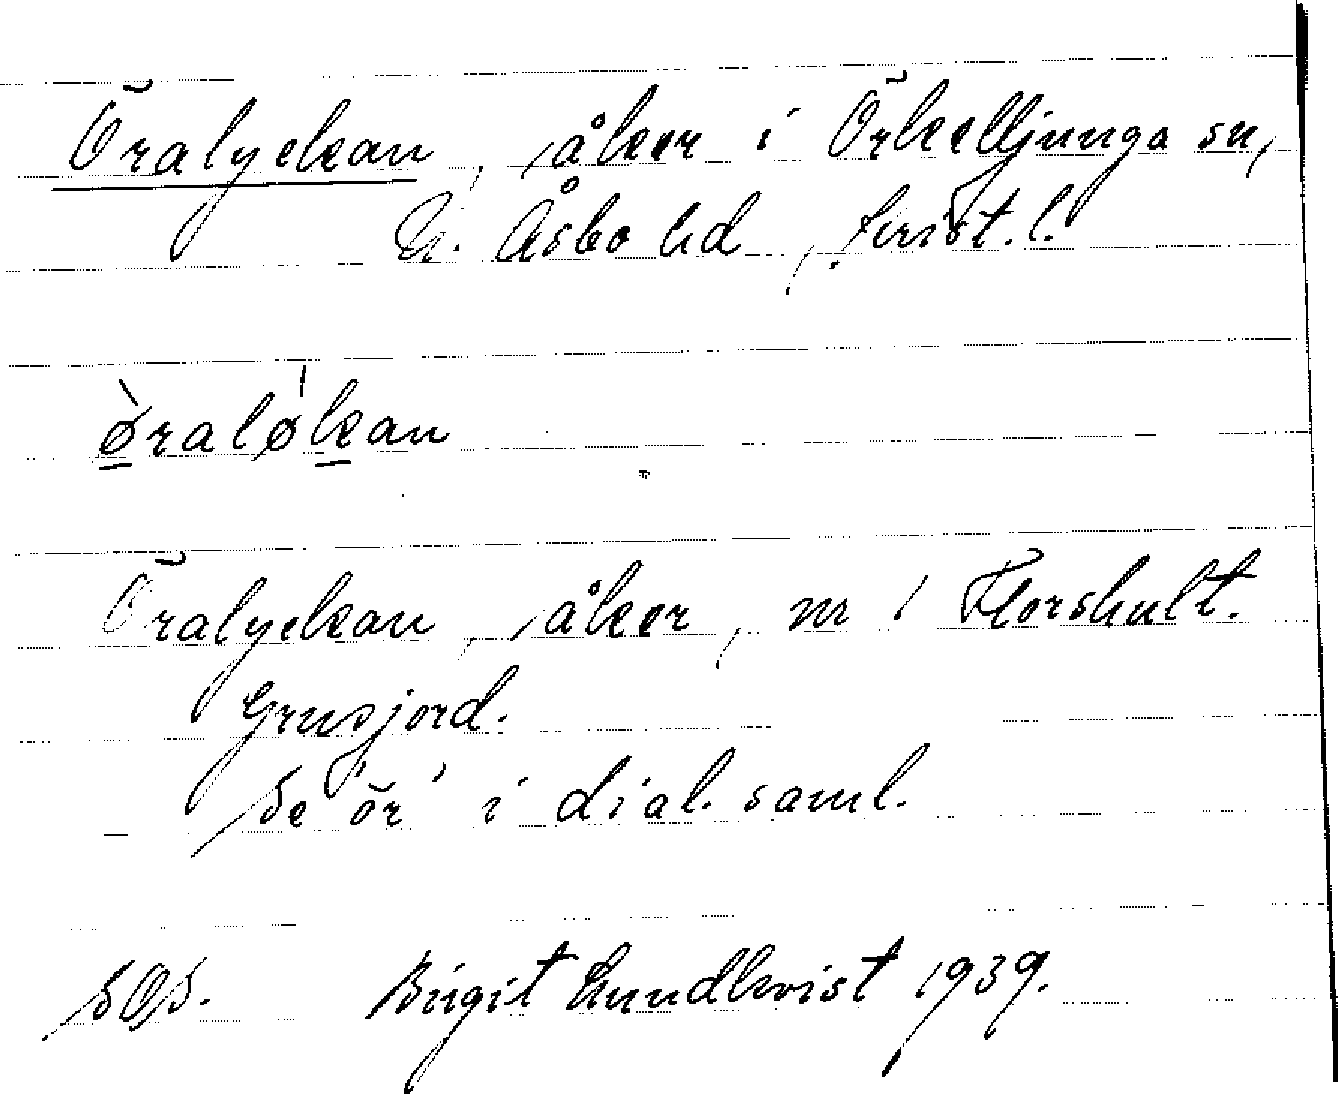 Öralyckan, åker i Örkelljunga sn,
N. Åsbo hd, Krist. l.
øraløkan
Öralyckan, åker, nr 1 Florshult.
Grusjord.
Se 'ör' i dial. saml.
SOS. Birgit Lundkvist 1939.